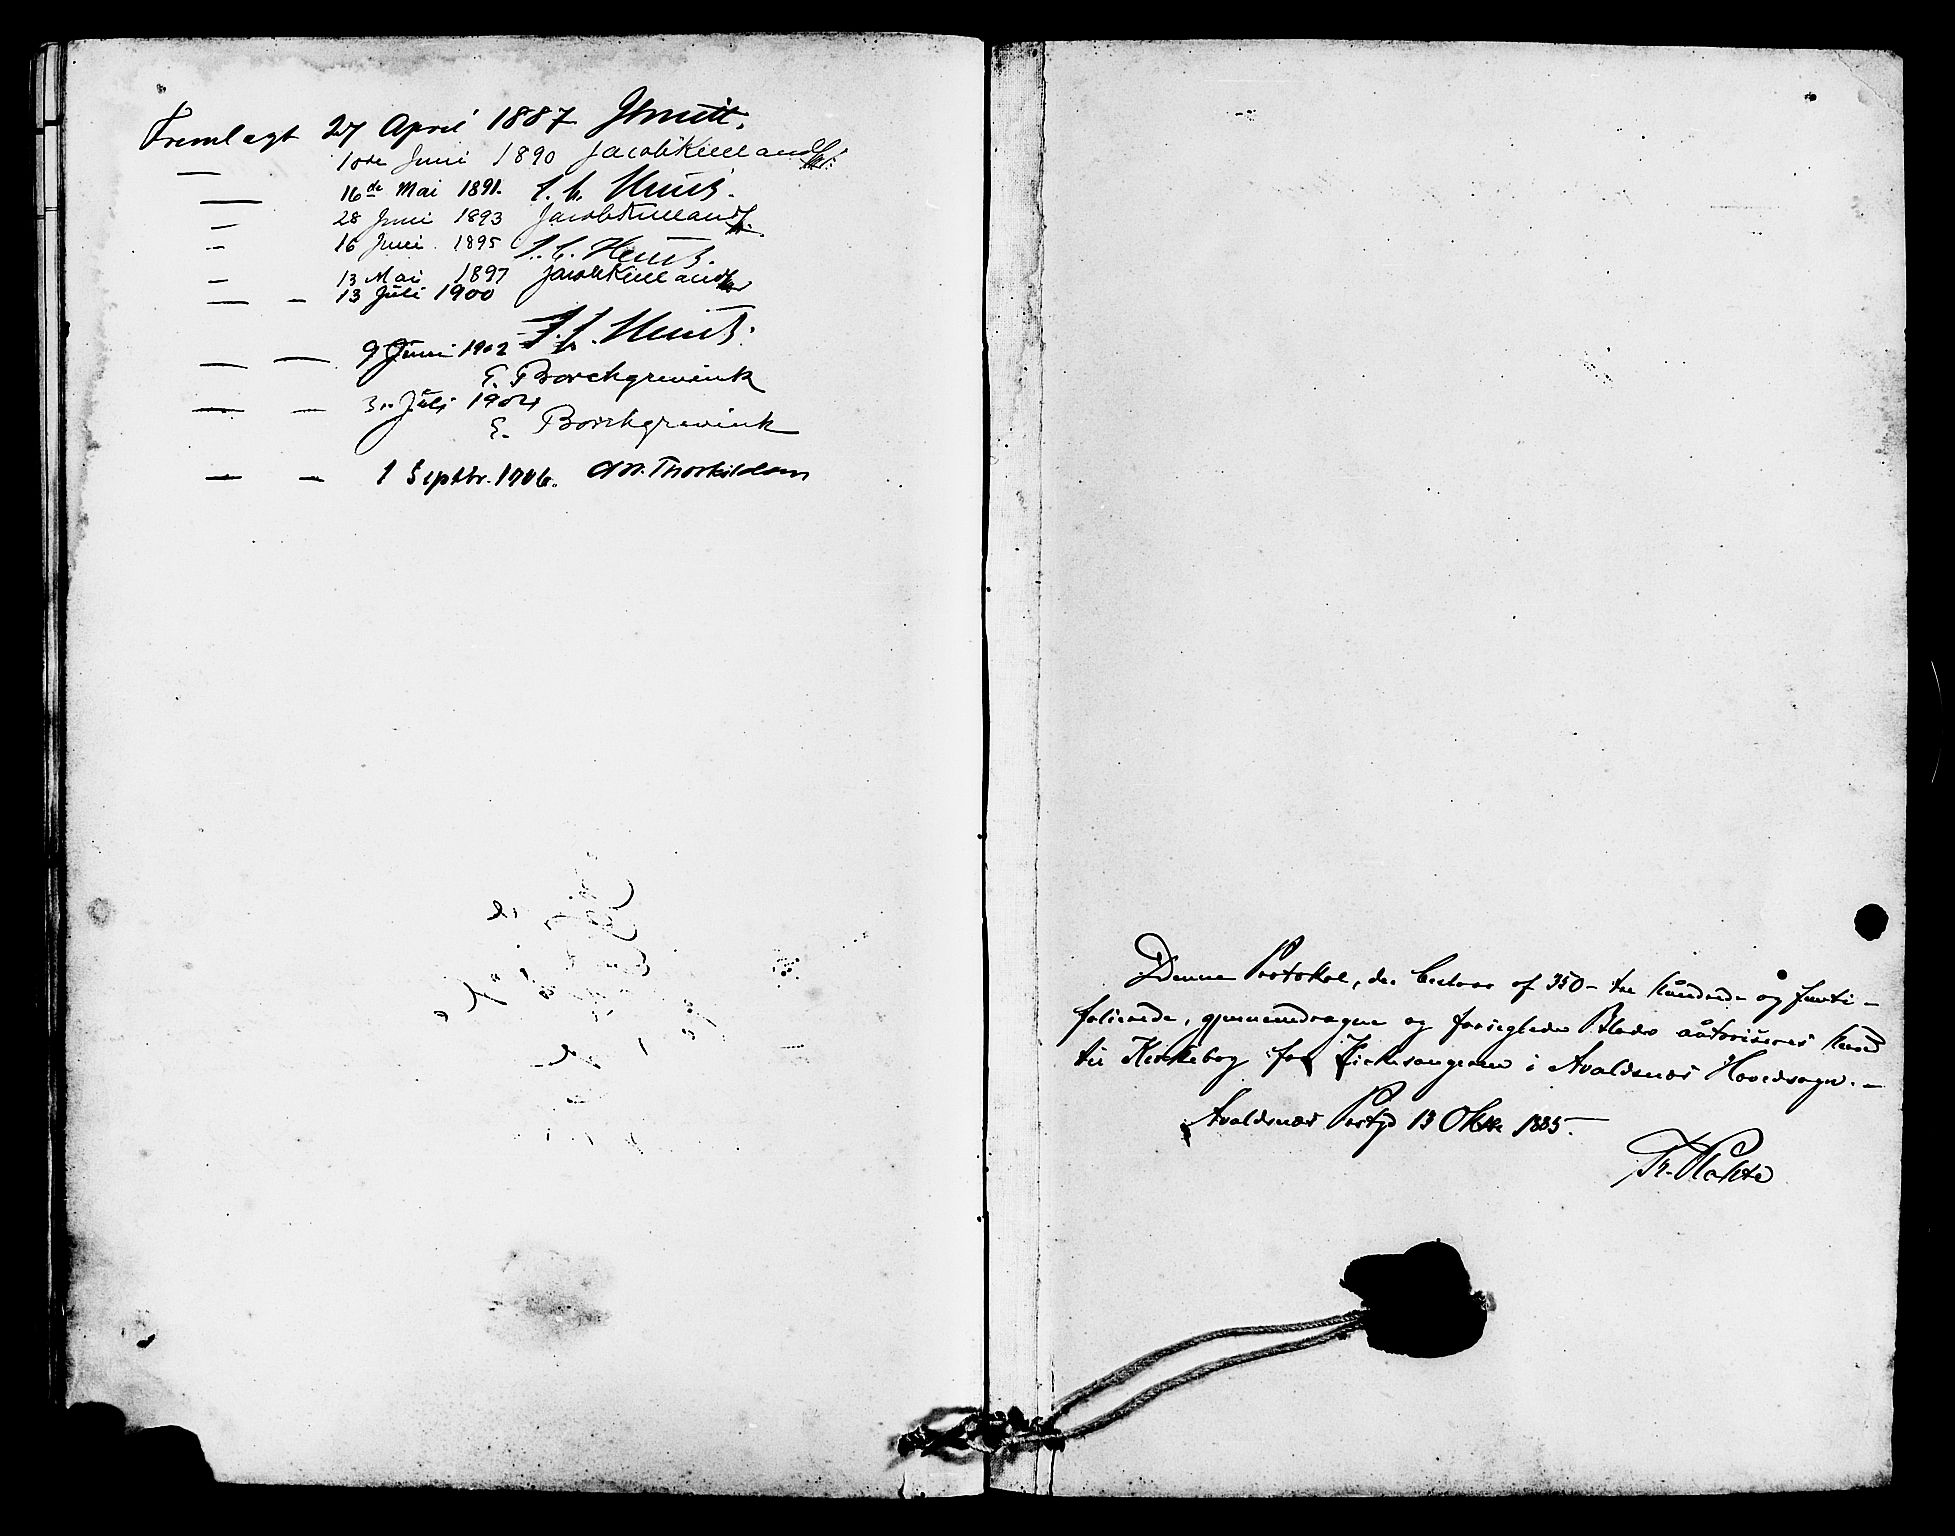 Fremlagt 27 April 1887
— 10de Juni 1890 Jacob Kielland
— 16de Mai 1891.
— 28 Juni 1893 Jacob Kielland
— 16 Juni 1895
— 13 Mai 1897 Jacob Kielland
— — 13 Juli 1900
— — 9 Juni 1902
E. Borchgrevink
— — Juli 1904
E. Borchgrevink
— — 1 Septbr. 1906. Thorkildsen
Denne Protokol, der bestaar af 350 - tre hundrede og femti -
folierede, gjennemdragne og forseglede Blade autoriseres herved
til Kirkebog for Kirkesangeren i Avaldsnæs Hovedsogn. -
Avaldsnæs Prstgd 13 Oktbr 1885.